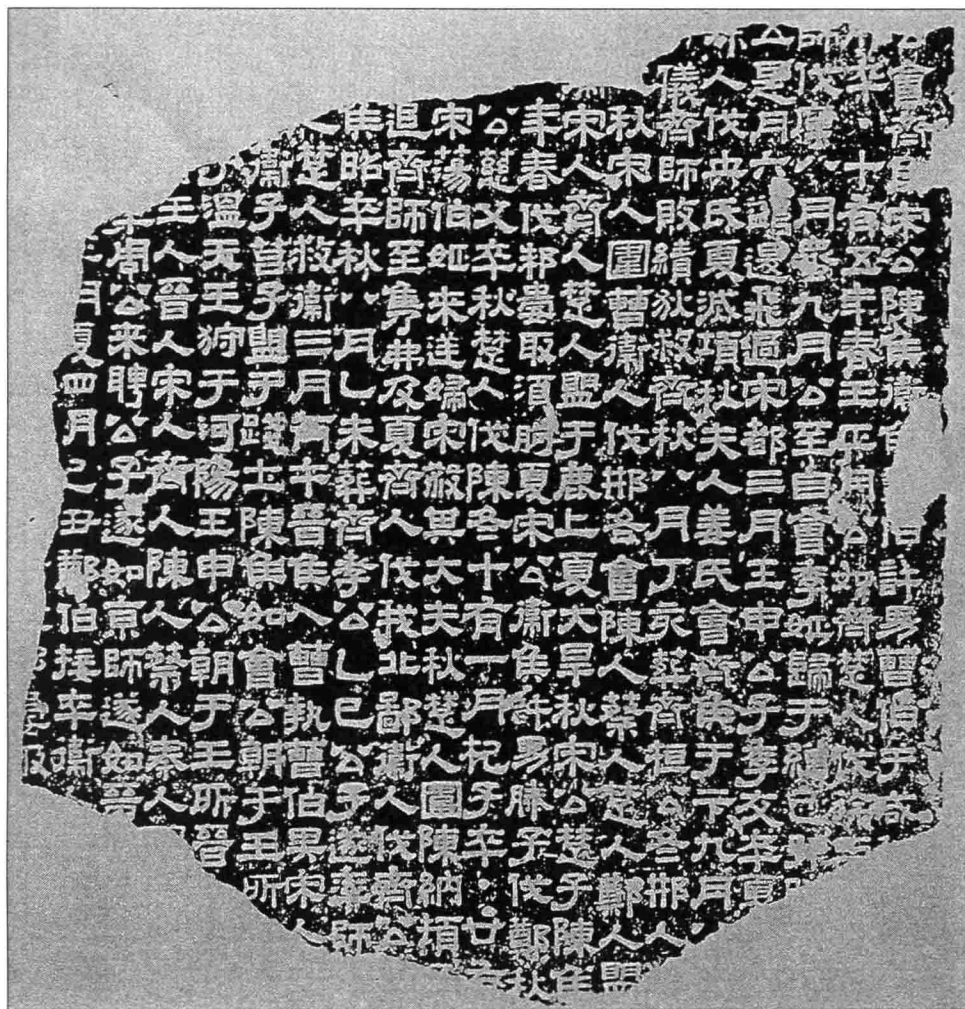 會齊侯宋公陳侯衛伯許男曹伯于咸
卒·十有五年春王正月公如齊楚人伐徐
師伐厲八月螽九月公至自會季姬歸于繒己卯
五是月六鶂退飛過宋都三月壬申公子季友卒夏
人伐英氏夏滅項秋夫人姜氏會齊侯于卞九月
儀齊師敗績狄救齊秋八月丁亥葬齊桓公冬邢人
秋宋人圍曹衛人伐邢冬會陳人蔡人楚人鄭人盟
宋人齊人楚人盟于鹿上夏大旱秋宋公楚子陳侯
年春伐邾婁取須朐夏宋公衛侯許男滕子伐鄭秋
公慈父卒秋楚人伐陳冬十有一月杞子卒·廿
宋蕩伯姬來逆婦宋殺其大夫秋楚人圍陳納頓
追齊師至巂弗及夏齊人伐我北鄙衛人伐齊公
年昭卒秋八月乙未葬齊孝公乙巳公子遂率師
人楚人救衛三月丙午晉侯入曹執曹伯畀宋人
衛子莒子盟于踐土陳侯如會公朝于王所
于溫天王狩于河陽壬申公朝于王所晉
王人晉人宋人齊人陳人蔡人秦人
宰周公來聘公子遂如京師遂如晉
月夏四月己丑鄭伯接卒衛
及